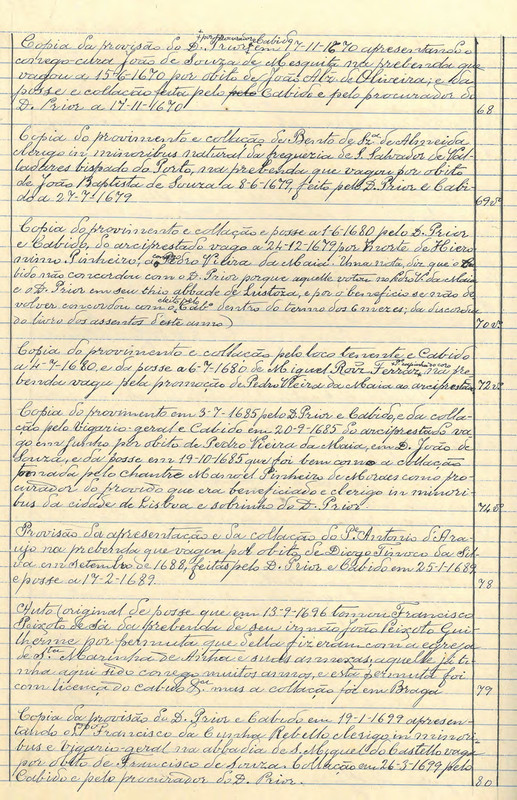 e por procuradores Cabido
Copia da provisão do D. Prior, em 17-11-1670 apresentando o
conego-cura João de Souza de Mesquita na prebenda que
vagou a 15-6-1670 por obito de João Alz. de Oliveira; e da
posse e collação feita pelo pelo Cabido e pelo procurador do
D. Prior a 17-11-1670 68
Copia do provimento e collação de Bento de Sza. de Almeida
clerigo in minoribus natural da freguezia de S. Salvador de Val-
ladares bispado do Porto, na prebenda que vagou por obito
de João Baptista de Souza a 8-6-1679, feito pelo D. Prior e Cabi-
do a 27-7-1679 69vº
Copia do provimento e collação e posse a 1-6-1680 pelo D. Prior
e Cabido, do arciprestado vago a 24-12-1679 por morte de Hiero-
nimo Pinheiro, em Pedro Vieira da Maia. Uma nota, diz que o Ca-
bido não concordou com o D. Prior porque aquelle votou no Pedro Vª da Maia
e o D. Prior em seu thio abbade de Lustosa, e por o beneficio se não de-
volver concordou com o eleito pelo Cabº dentro do termo dos 6 mezes; da discordia
do livro dos assentos d'este anno) 70vº
Copia do provimento e collação pelo loco tenente e Cabido
a 4-7-1680, e da posse a 6-7-1680 de Miguel Roiz Ferraz, na pre-
benda vaga pela promoção de Pedro Vieira da Maia ao arciprestado 72vº
Copia do provimento em 3-7-1685 pelo D. Prior e Cabido, e da colla-
ção pelo Vigario-geral e Cabido em 20-9-1685 do arciprestado va-
go em Junho por obito de Pedro Vieira da Maia, em D. João de
Souza, e da posse em 19-10-1685 que foi bem como a collação
tomada pelo chantre Manoel Pinheiro de Moraes como pro-
curador do provido que era beneficiado e clerigo in minori-
bus da cidade de Lisboa e sobrinho do D. Prior. 74vº
Provisão da apresentação e da collação do Pe. Antonio de Arau-
jo na prebenda que vagou por obito de Diogo Tinoco da Sil-
va em setembro de 1688, feitas pelo D. Prior e Cabido em 25-1-1689,
e posse a 17-2-1689. 78
Auto (original de posse que em 13-9-1696 tomou Francisco
Peixoto de Sá da prebenda de seu irmão João Peixoto Gui-
lherme por permuta que della fizeram com a egreja
de Sta. Marinha de Arnha e suas annexas; aquelle já ti-
nha aqui sido conego muitos annos, e esta permuta foi
com licença do cabido mas a collação foi em Braga 79
Copia da provisão do D. Prior e Cabido em 19-1-1699 apresen-
tando o Pe. Francisco da Cunha Rebello, clerigo in minori-
bus e vigario-geral na abbadia de S. Miguel do Castello vaga
por obito de Francisco de Souza. Collação em 26-3-1699 pelo
Cabido e pelo procurador do D. Prior. 80